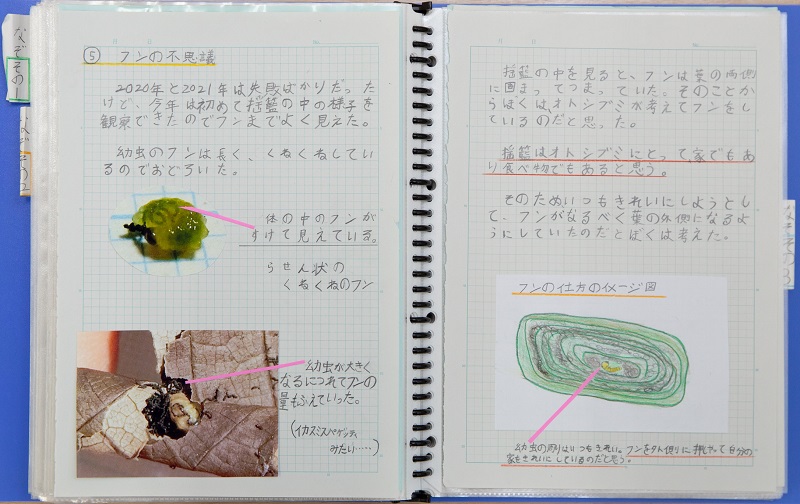 なぞその1
⑤ フンの不思議
2020年と2021年は失敗ばかりだった
けど、今年は初めて揺籃の中の様子を
観察できたのでフンまでよく見えた。
幼虫のフンは長く、くねくねしてい
るのでおどろいた。
体の中のフンが
すけて見えている。
らせん状の
くねくねのフン
幼虫が大きく
なるにつれてフンの
量もふえていった。
(イカスミスパゲッティ
みたい……)
揺籃の中を見ると、フンは葉の両側
に固まってつまっていた。そのことか
らぼくは、オトシブミが考えてフンをし
ているのだと思った。
揺籃はオトシブミにとって、家でもあ
り食べ物でもあると思う。
そのためいつもきれいにしようとし
て、フンがなるべく葉の外側になるよ
うにしていたのだとぼくは考えた。
フンの仕方のイメージ図
幼虫の周りはいつもきれい。フンを外側に押しやって自分の
家をきれいにしているのだと思う。
なぞその3